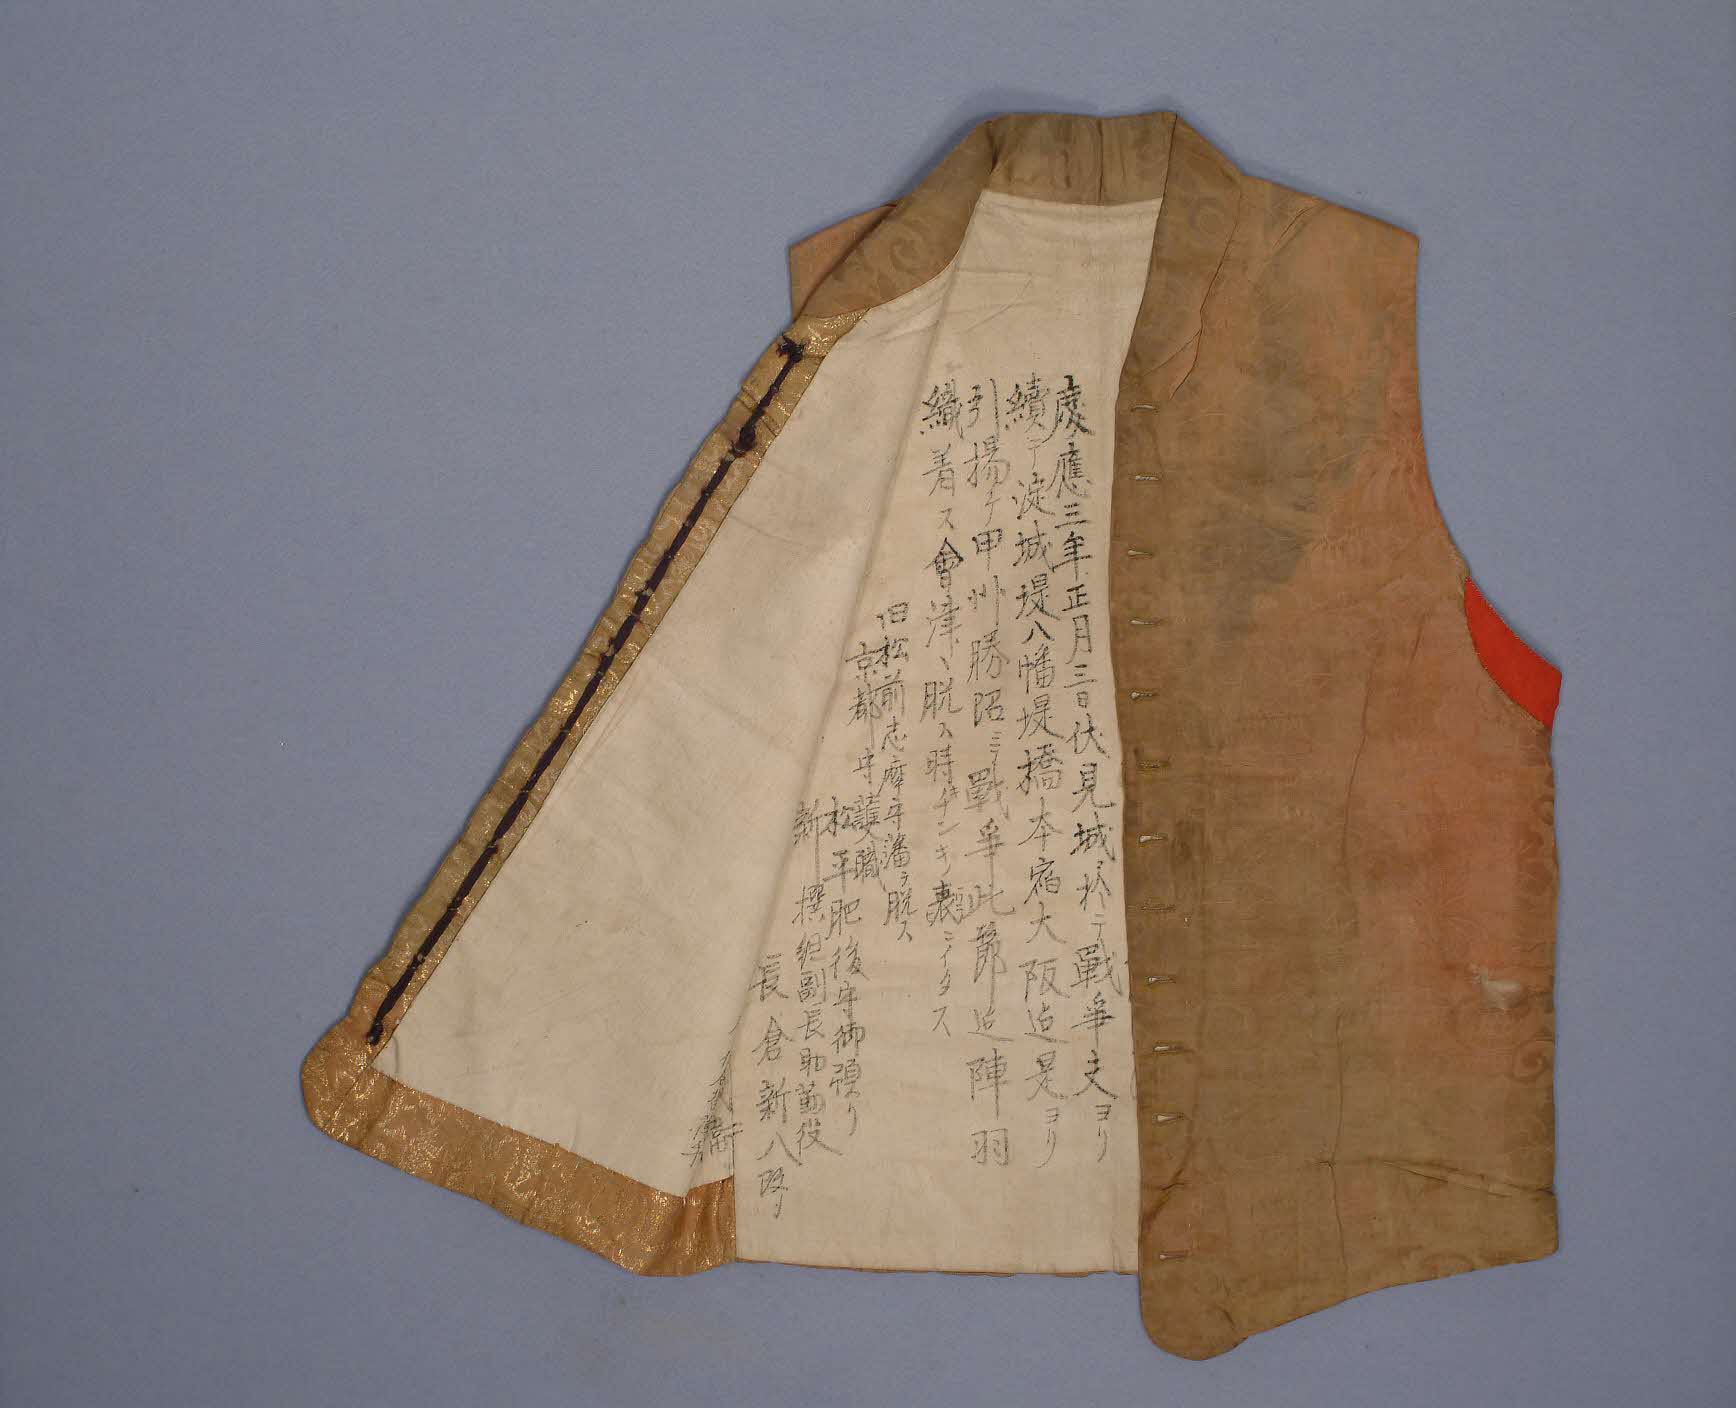 慶應三年正月三日伏見城ニ於テ戰爭夫ヨリ
續テ淀城堤八幡堤橋本宿大阪迠是ヨリ
引揚ケ甲州勝沼ニテ戰爭此節迠陣羽
織着ス會津ヽ脱ス時チンキ裏ニイタス
旧松前志摩守藩ヲ脱ス
京都守護職
松平肥後守御預り
新撰組副長助勤役
長倉新八
義衛